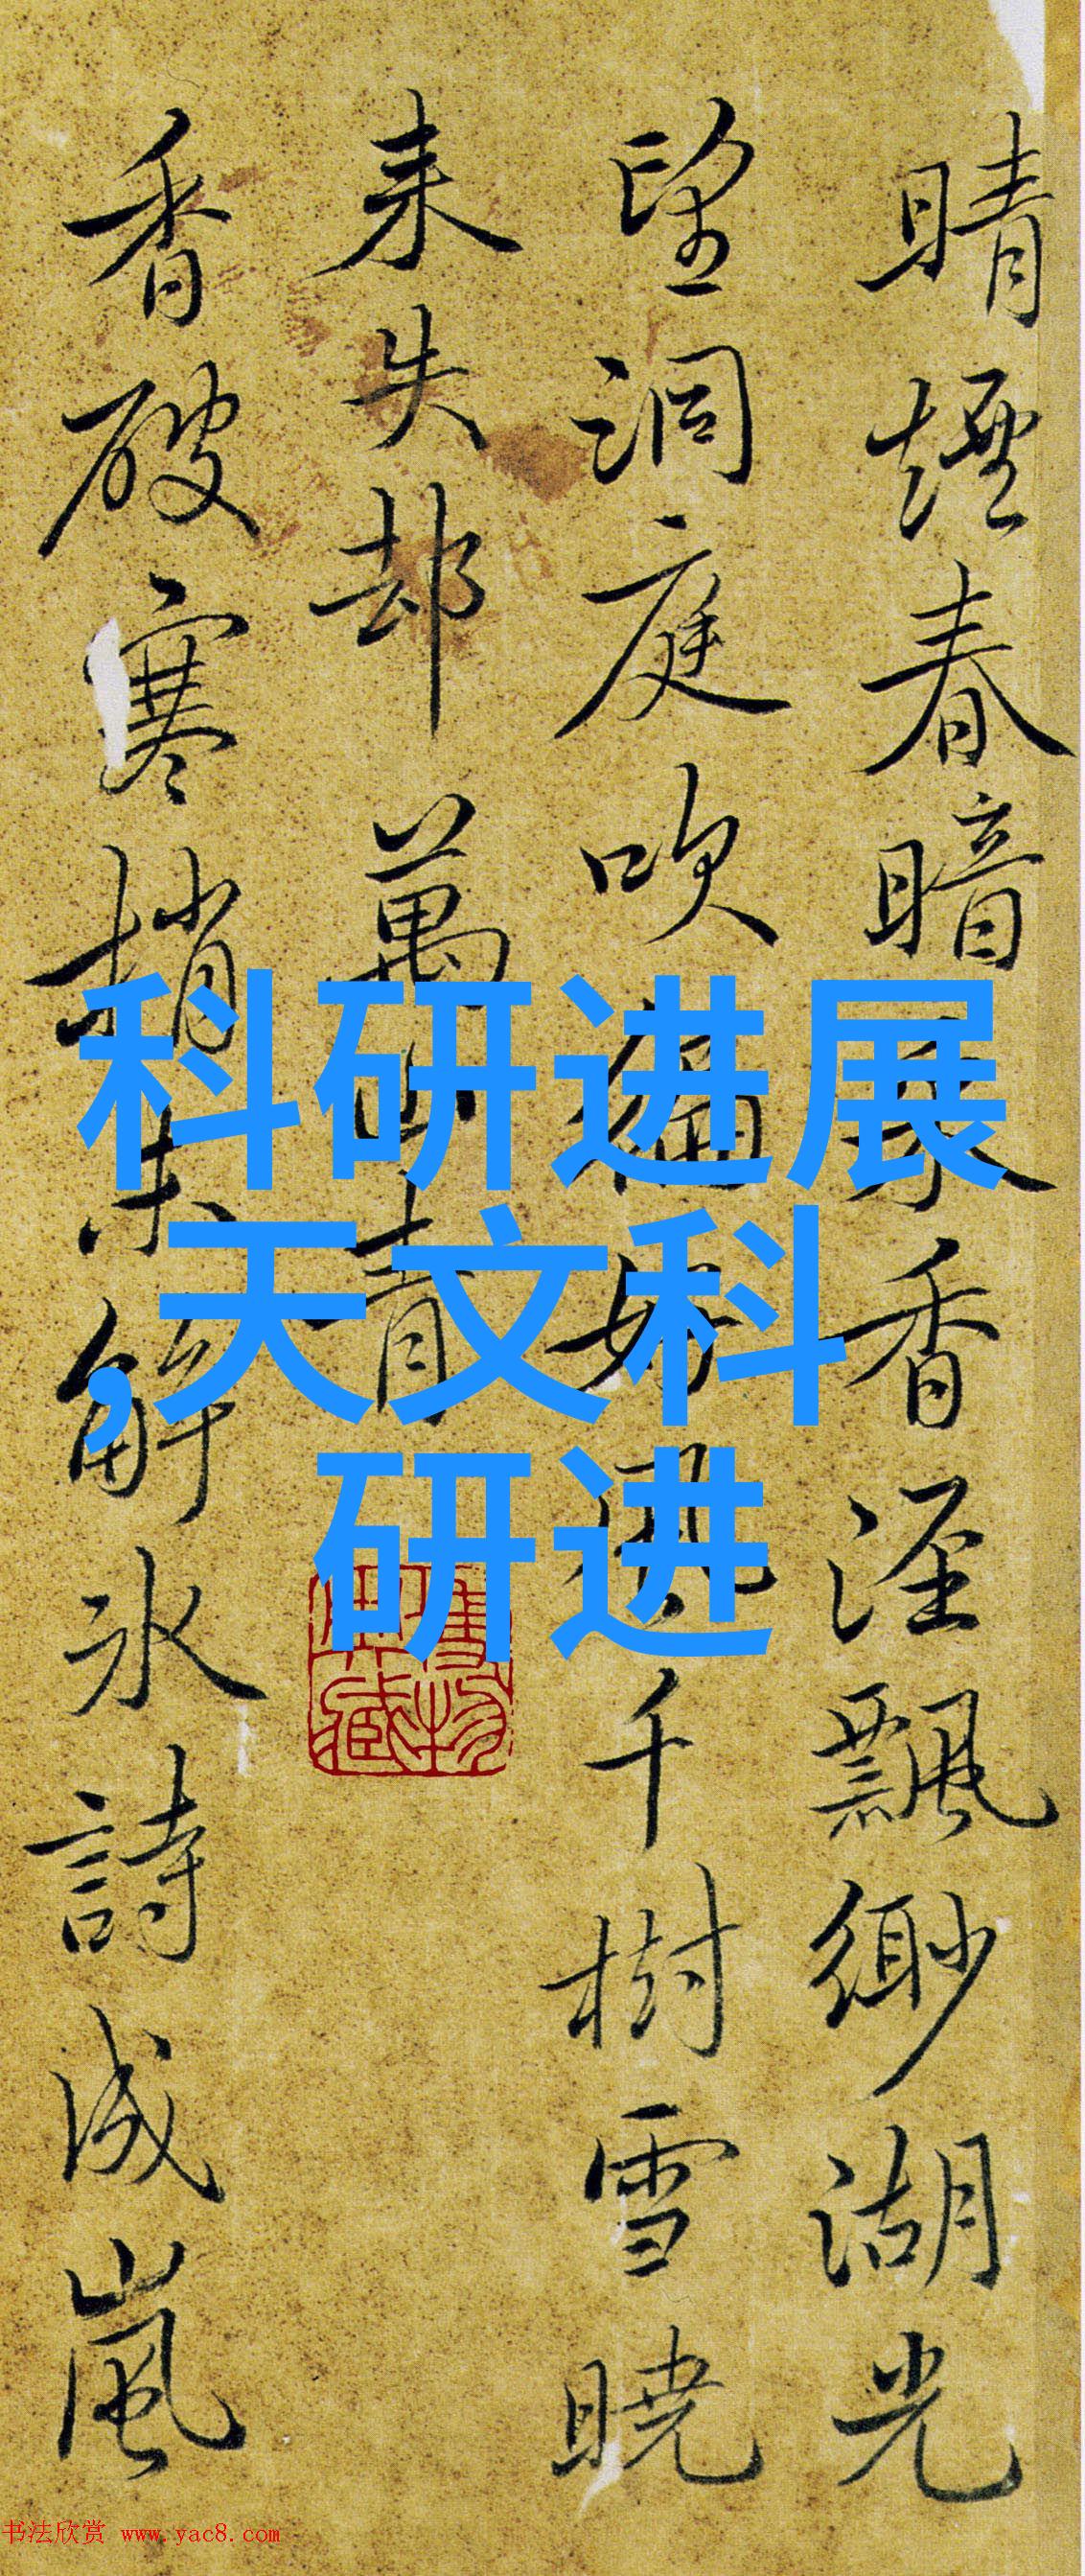 晴煙春暗香溼飄緲湖光
望洞庭吹徧好千樹雪曉
来失却萬青
香破寒梢未解氷詩成嵐
科研进展
,天文科
研进
书法欣赏 www.yac8.com